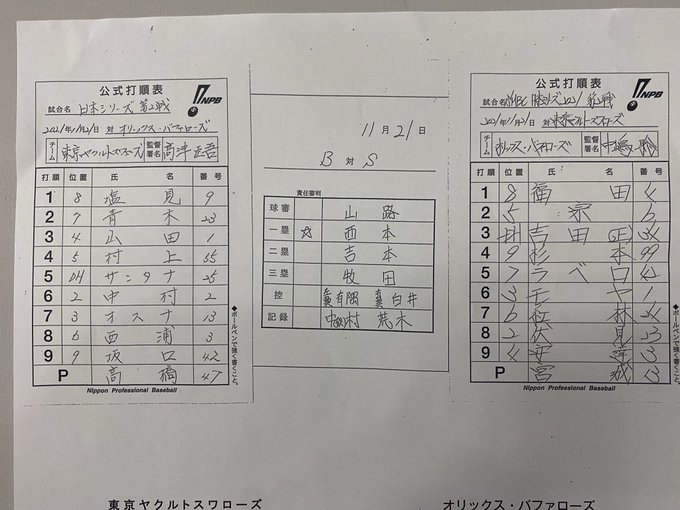 公式打順表
NPB
試合名 日本シリーズ 第2戦
2021年11月21日 対 オリックス・バファローズ
チーム 東京ヤクルトスワローズ 監督署名 高津臣吾
打順 位置 氏名 番号
1 8 塩見 9
2 7 青木 23
3 4 山田 1
4 5 村上 55
5 DH サンタナ 25
6 2 中村 2
7 3 オスナ 13
8 6 西浦 3
9 9 坂口 42
P 高橋 47
Nippon Professional Baseball
◆ボールペンで強く書くこと。
11月21日
B 対 S
責任審判
球審 山路
一塁 ☆ 西本
二塁 吉本
三塁 牧田
控 有隅 白井
記録 中村 荒木
公式打順表
NPB
試合名 SMBC 日本シリーズ2021 第2戦
2021年11月21日 対 東京ヤクルトスワローズ
チーム オリックス・バファローズ 監督署名 中嶋聡
打順 位置 氏名 番号
1 8 福田 4
2 5 宗 6
3 DH 吉田正 34
4 9 杉本 99
5 7 ラベロ 42
6 3 モヤ 1
7 6 紅林 24
8 2 伏見 23
9 4 安達 3
P 宮城 13
Nippon Professional Baseball
◆ボールペンで強く書くこと。
東京ヤクルトスワローズ
オリックス・バファローズ